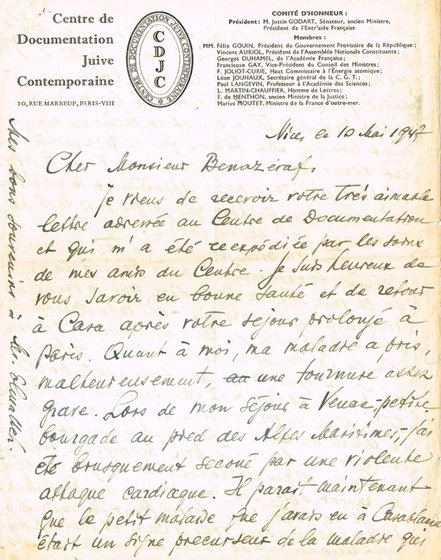 Centre de
Documentation
Juive
Contemporaine
10, RUE MARBEUF, PARIS-VIII
CENTRE DE DOCUMENTATION JUIVE CONTEMPORAINE
CDJC
COMITÉ D'HONNEUR :
Président : M. Justin GODART, Sénateur, ancien Ministre,
Président de l'Entr'aide Française
Membres :
MM. Félix GOUIN, Président du Gouvernement Provisoire de la République ;
Vincent AURIOL, Président de l'Assemblée Nationale Constituante ;
Georges DUHAMEL, de l'Académie Française ;
Francisque GAY, Vice-Président du Conseil des Ministres ;
F. JOLIOT-CURIE, Haut Commissaire à l'Énergie atomique ;
Léon JOUHAUX, Secrétaire général de la C. G. T. ;
Paul LANGEVIN, Professeur à l'Académie des Sciences ;
L. MARTIN-CHAUFFIER, Homme de Lettres ;
F. de MENTHON, ancien Ministre de la Justice ;
Marius MOUTET, Ministre de la France d'outre-mer.
Nice, le 10 Mai 1947
Cher Monsieur Benazéraf,
je viens de recevoir votre très aimable
lettre adressée au Centre de Documentation
et qui m'a été réexpédiée par les soins
de mes amis du Centre. Je suis heureux de
vous savoir en bonne santé et de retour
à Casa après votre séjour prolongé à
Paris. Quant à moi, ma maladie a pris,
malheureusement, au une tournure assez
grave. Lors de mon séjour à Vence, petite
bourgade au pied des Alpes Maritimes, j'ai
été brusquement secoué par une violente
attaque cardiaque. Il paraît maintenant
que le petit malaise que j'avais eu à Casablanca
était un signe précurseur de la maladie qui
Mes bons souvenirs à M.